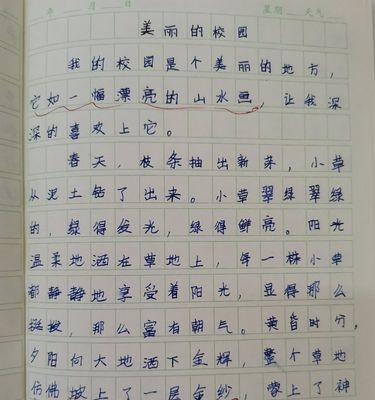 年 月 日 星期 天气
美丽的校园
我的校园是个美丽的地方,
它如一幅漂亮的山水画,让我深
深的喜欢上它。
春天,枝条抽出新芽,小草
从泥土钻了出来。小草翠绿翠绿
的,绿得发光,绿得鲜亮。阳光
温柔地洒在草地上,每一株小草
都静静地享受着阳光,显得那么
挺拔,那么富有朝气。黄昏时分,
夕阳向大地洒下金辉,整个草地
仿佛披上了一层金纱,蒙上了神